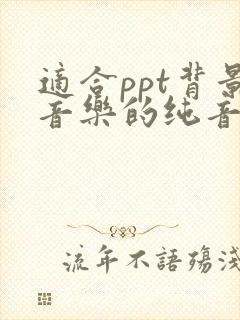 適合ppt背景
音樂的纯音
流年不語殤淺